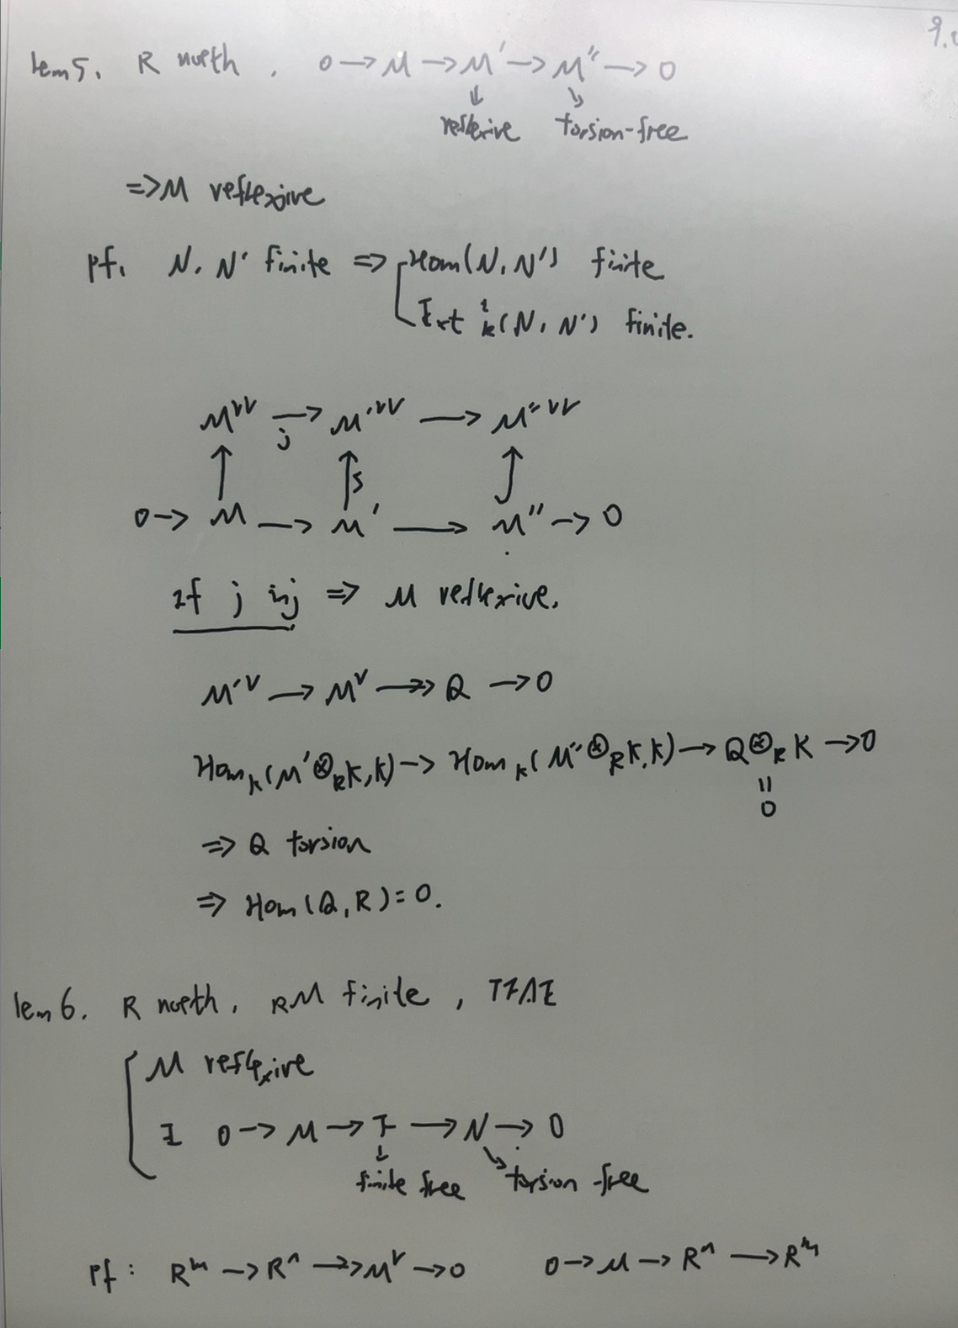 lem 5. R noeth. 0 → M → M' → M'' → 0
↓ reflexive ↘ torsion-free
⇒ M reflexive
pf. N, N' finite ⇒ Hom(N, N') finite
Ext^i_R(N, N') finite.
M^∨∨ →_j M'^∨∨ → M''^∨∨
↑ ↑s ↑
0 → M → M' → M'' → 0
If j inj ⇒ M reflexive.
M'^∨ → M^∨ ↠ Q → 0
Hom_K(M'⊗_R K, K) → Hom_K(M''⊗_R K, K) → Q⊗_R K → 0
= 0
⇒ Q torsion
⇒ Hom(Q, R) = 0.
lem 6. R noeth. RM finite, TFAE
M reflexive
∃ 0 → M → F → N → 0
↓ finite free ↘ torsion-free
Pf: R^m → R^n ↠ M^∨ → 0 0 → M → R^n → R^m